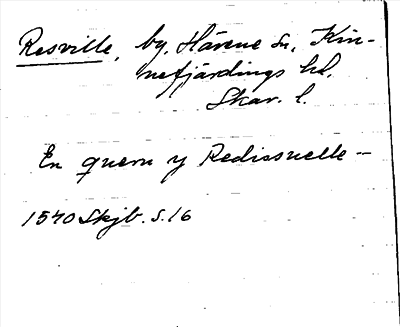 Resville, by, Härene sn, Kin-
nefjärdings hd,
Skar. l.
En quern y Redissuelle —
1540 Skjb. s. 16